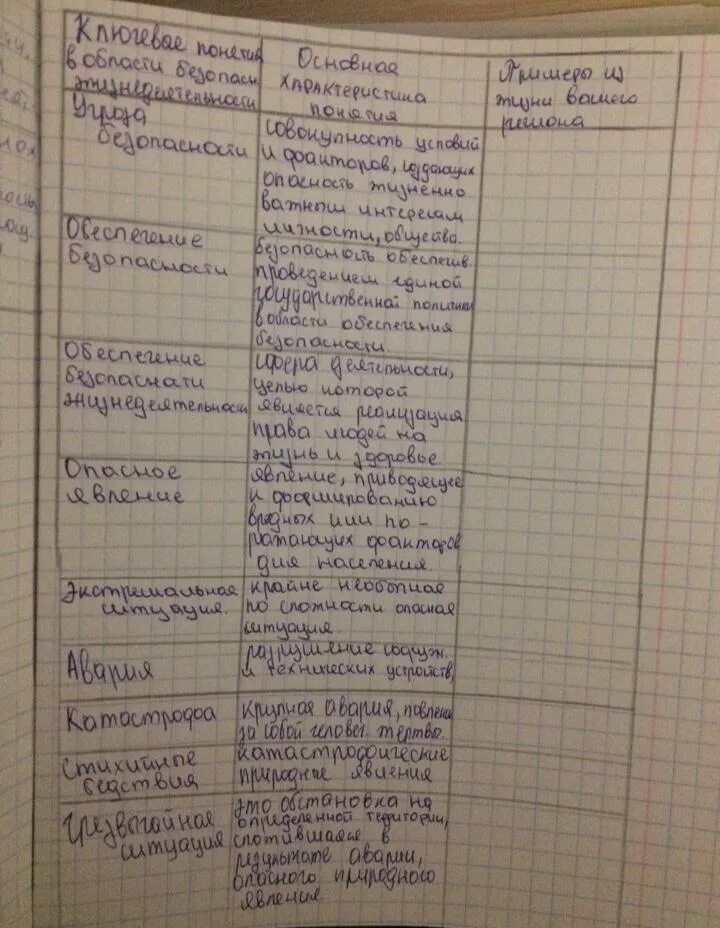 Ключевые понятия
в области безопасн
жизнедеятельности
Основная
характеристика
понятия
Примеры из
жизни вашего
региона
Угроза
безопасности
совокупность условий
и факторов, создающих
опасность жизненно
важным интересам
личности, общества.
Обеспечение
безопасности
безопасность обеспечив.
проведением единой
государственной политики
в области обеспечения
безопасности.
Обеспечение
безопасности
жизнедеятельности
сфера деятельности,
целью которой
является реализация
права людей на
жизнь и здоровье
Опасное
явление
явление, приводящее
к формированию
вредных или по-
ражающих факторов
для населения.
Экстремальная
ситуация.
крайне необычная
по сложности опасная
ситуация.
Авария
разрушение сооруж.
и технических устройств,
Катастрофа
крупная авария, повлекш
за собой человеч. жертвы.
Стихийные
бедствия
катастрофические
природные явления
Чрезвычайная
ситуация
это обстановка на
определенной территории,
сложившаяся в
результате аварии,
опасного природного
явления.